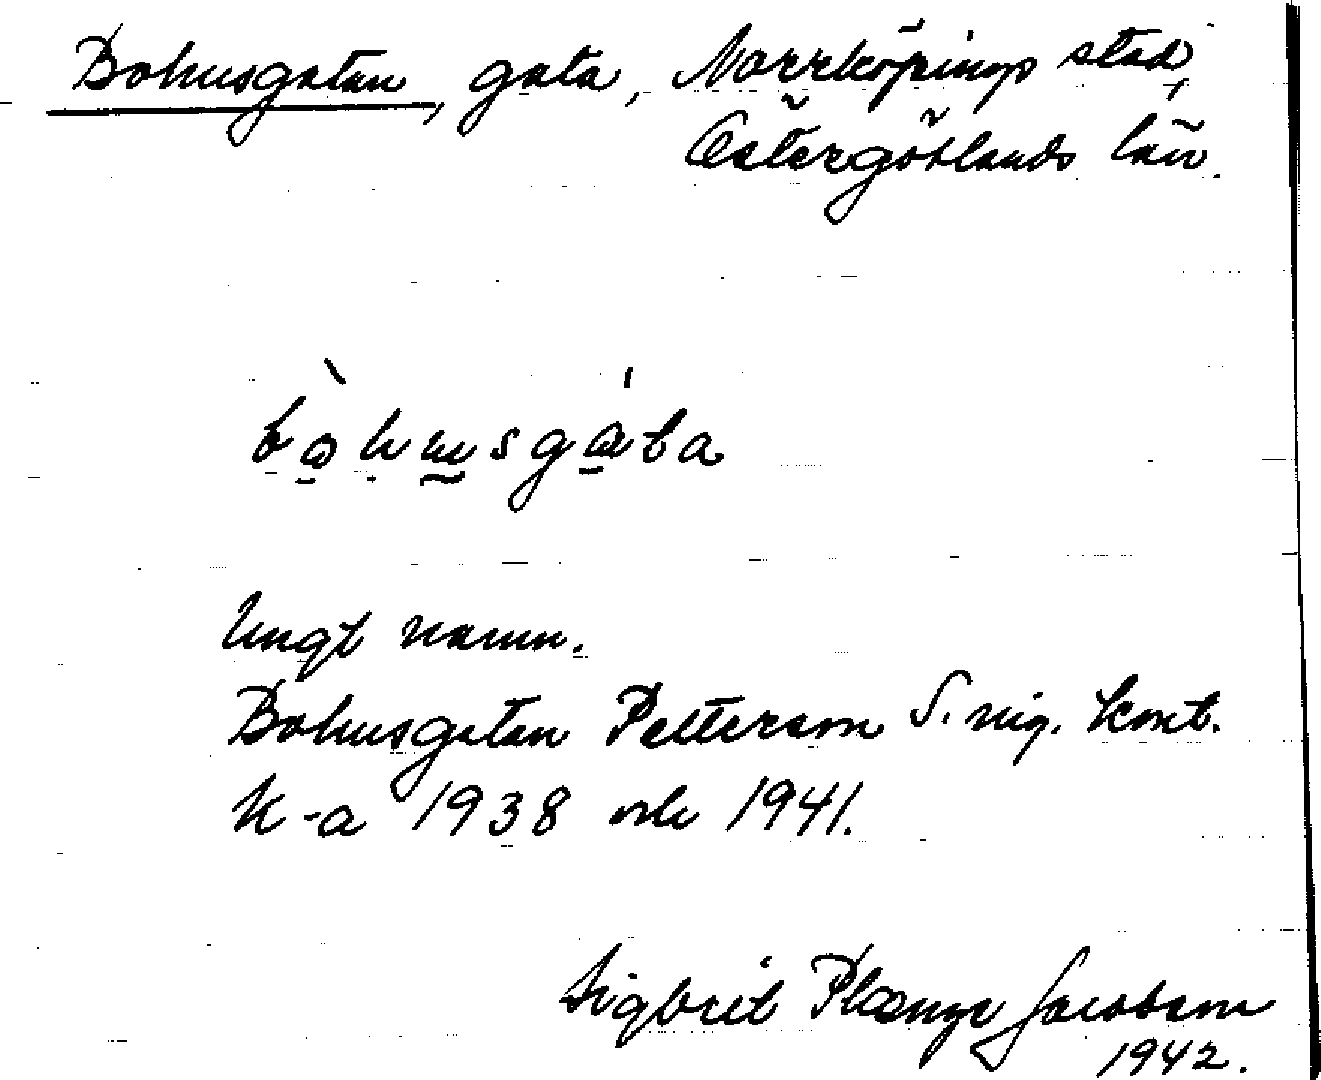 Bohusgatan, gata, Norrköpings stad,
Östergötlands län.
bòhusgáta
Ungt namn.
Bohusgatan Petterson S. nig. kont.
K-a 1938 och 1941.
Sigbrit Plænge Jacobson
1942.